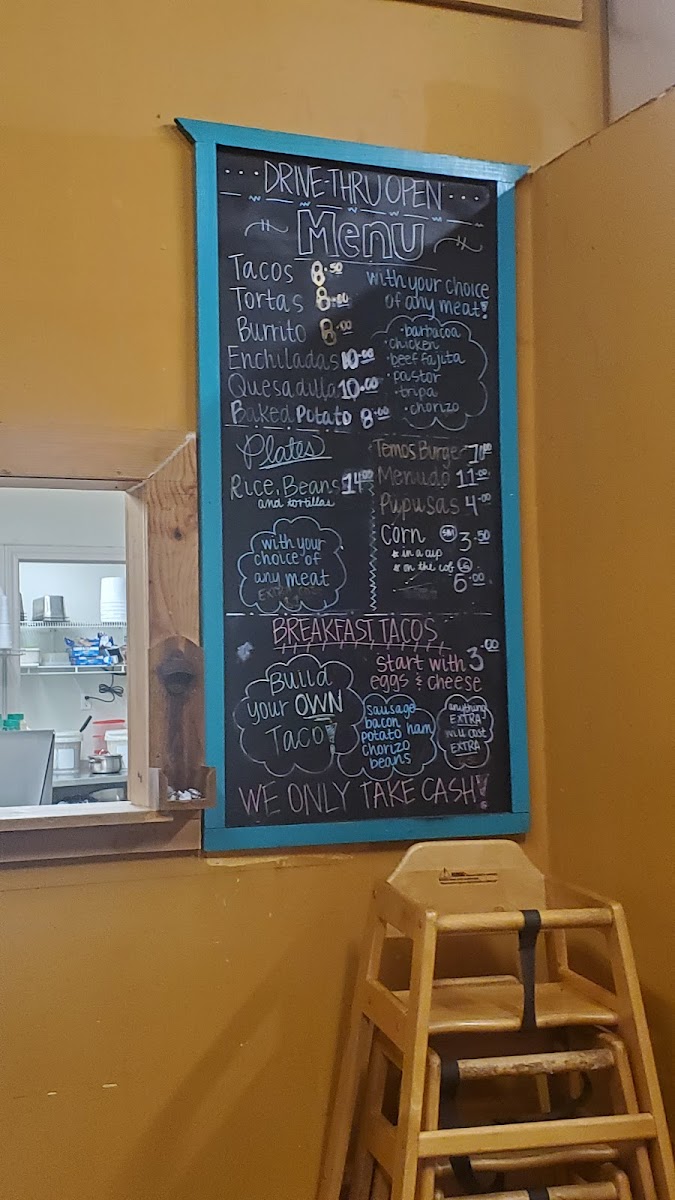 DRIVE-THRU OPEN
Menu
Tacos 8.50
Tortas 8.00
Burrito 8.00
Enchiladas 10.00
Quesadilla 10.00
Baked Potato 8.00
with your choice
of any meat!
• barbacoa
• chicken
• beef fajita
• pastor
• tripa
• chorizo
Plates
Rice, Beans 14.00
and tortillas
with your
choice of
any meat
Temos Burger 10.00
Menudo 11.00
Pupusas 4.00
Corn 3.50
* in a cup
* on the cob
6.00
BREAKFAST TACOS
Start with 3.00
eggs & cheese
Build
your OWN
Taco!
sausage
bacon
potato ham
chorizo
beans
anything
EXTRA
will cost
EXTRA
WE ONLY TAKE CASH!